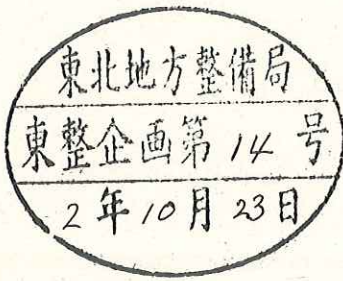 東北地方整備局
東整企画第14号
2年10月23日